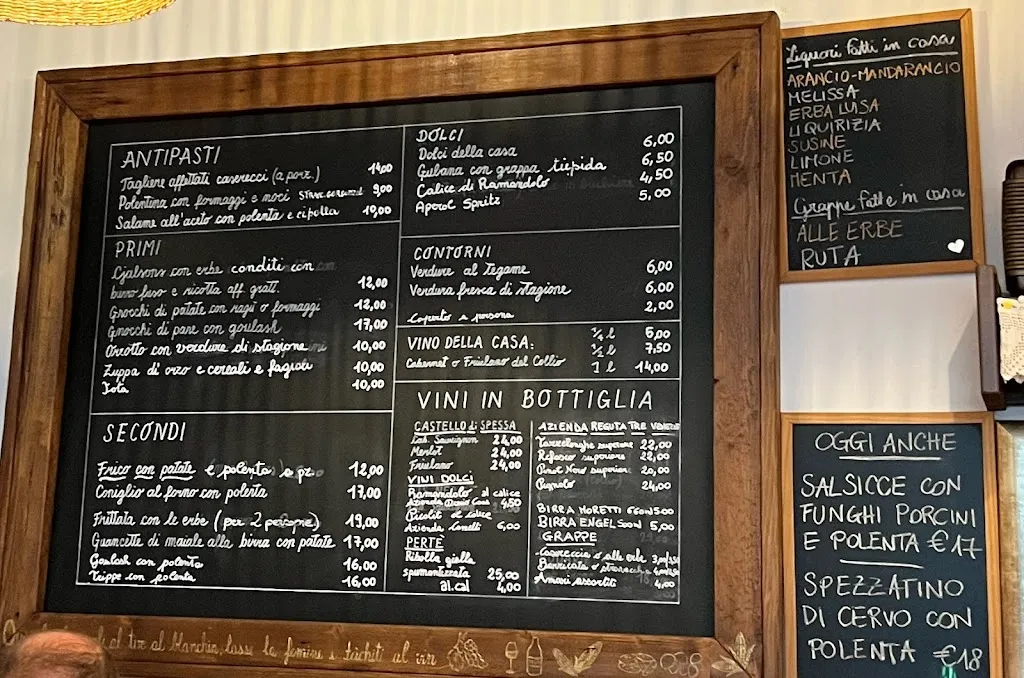 ANTIPASTI
Tagliere affettati caserecci (a porz.) 14,00
Polentina con formaggi e noci 9,00
Salame all'aceto con polenta e cipolla 10,00
PRIMI
Cjalsons con erbe conditi con
burro fuso e ricotta aff. gratt. 12,00
Gnocchi di patate con ragù o formaggi 12,00
Gnocchi di pane con goulash 17,00
Orzotto con verdure di stagione 10,00
Zuppa di orzo e cereali e fagioli 10,00
Jota 10,00
SECONDI
Frico con patate e polenta 12,00
Coniglio al forno con polenta 17,00
Frittata con le erbe (per 2 persone) 19,00
Guancette di maiale alla birra con patate 17,00
Goulash con polenta 16,00
Trippe con polenta 16,00
DOLCI
Dolci della casa 6,00
Gubana con grappa tiepida 6,50
Calice di Ramandolo 4,50
Aperol Spritz 5,00
CONTORNI
Verdure al tegame 6,00
Verdura fresca di stagione 6,00
Coperto a persona 2,00
VINO DELLA CASA: 1/4 l 5,00
1/2 l 7,50
Cabernet o Friulano del Collio 1 l 14,00
VINI IN BOTTIGLIA
CASTELLO di SPESSA
Cab. Sauvignon 24,00
Merlot 24,00
Friulano 24,00
VINI DOLCI
Ramandolo al calice
Azienda 4,50
Picolit al calice
Azienda 6,00
PERTÉ
Ribolla gialla
spumantizzata 25,00
al cal 4,00
AZIENDA REGUTA TRE
superiore 22,00
Refosco superiore 22,00
Pinot Nero superiore 20,00
Pignolo 24,00
BIRRA MORETTI 66cl 5,00
BIRRA 5,00
GRAPPE
Casereccia o alle erbe
Barricata o
Amari assortiti 4,00
al tir al blanchia, lasse la femine e tachiti al vin
Liquori fatti in casa
ARANCIO-MANDARANCIO
MELISSA
ERBA LUISA
LIQUIRIZIA
SUSINE
LIMONE
MENTA
Grappe fatte in casa
ALLE ERBE
RUTA
OGGI ANCHE
SALSICCE CON
FUNGHI PORCINI
E POLENTA €17
SPEZZATINO
DI CERVO CON
POLENTA €18